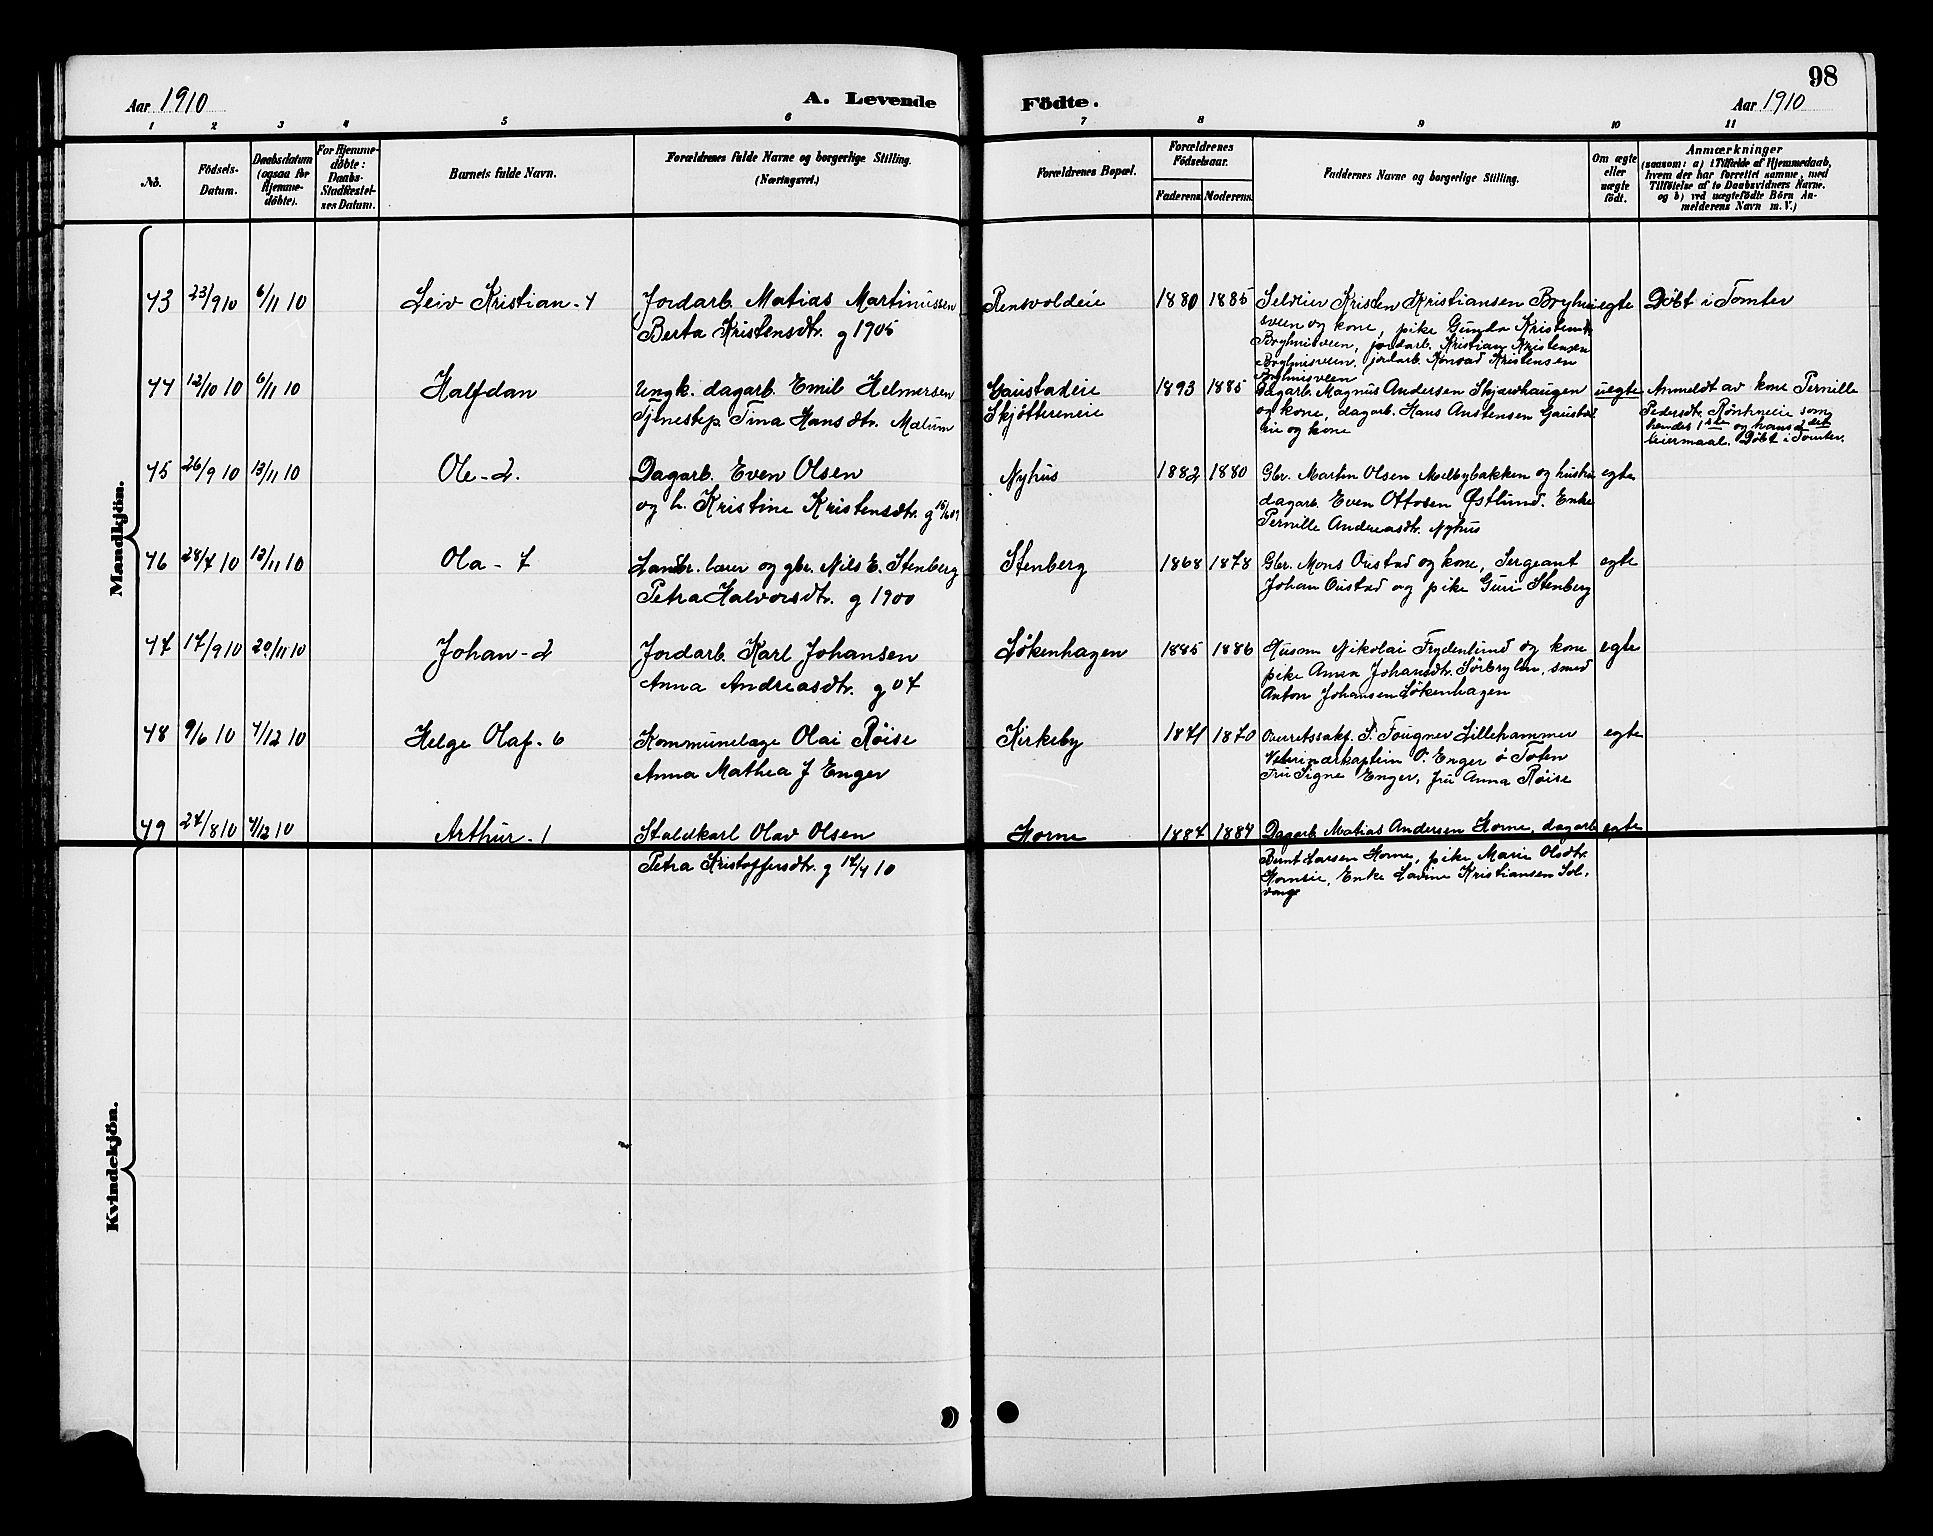 98
Aar 1910
A. Levende Födte.
Aar 1910
1 2 3 4 5 6 7 8 9 10 11
No.
Födsels-
Datum.
Daabsdatum
(ogsaa for
Hjemme-
döbte).
For Hjemme-
döbte:
Daabs-
Stadfæstel-
ses Datum.
Barnets fulde Navn.
Forældrenes fulde Navne og borgerlige Stilling.
(Næringsvei.)
Forældrenes Bopæl.
Forældrenes
Födselsaar.
Faderens. Moderens.
Faddernes Navne og borgerlige Stilling.
Om ægte
eller
uægte
födt.
Anmærkninger
(saasom: a) i Tilfælde af Hjemmedaab,
hvem der har forrettet samme, med
Tilföielse af to Daabsvidners Navne,
og b) ved uægtefödte Börn An-
melderens Navn m. V.)
Mandkjön.
43 23/9 10 6/11 10 Leiv Kristian - 4 Jordarb. Matias Martinussen
Berta Kristensdtr. g 1905
Rensvoldeie 1880 1885 Seleier Kristen Kristiansen Bryhni
sveen og kone, pike Gunda Kristensdtr
Bryhnisveen, jordarb. Kristian Kristensen
Bryhnisveen, jordarb. Konrad Kristensen
Bryhnisveen
egte Döbt i Tomter
44 12/10 10 6/11 10 Halfdan Ungk. dagarb. Emil Helmersen
Tjenestep. Tina Hansdtr. Mælum
Gaustadeie
Skjøttereneie
1893 1885 Dagarb. Magnus Andersen Skjævhaugen
og kone, dagarb. Hans Austensen Gaustad
eie og kone
uegte Anmeldt av kone Pernille
Pedersdtr. som
hendes 1ste og hans 2det
leiermaal. Döbt i Tomter.
45 26/9 10 13/11 10 Ole - 2. Dagarb. Even Olsen
og h. Kristine Kristensdtr. g
Nyhus 1882 1880 Gbr. Martin Olsen Melbybakken og hustru
dagarb. Even Ottosen Østlund. Enke
Pernille Andreasdtr. Nyhus
egte
46 28/7 10 13/11 10 Ola - 7 Landbr. lærer og gbr. Nils E. Stenberg
Petra Halvorsdtr. g 1900
Stenberg 1868 1878 Gbr. Mons Oustad og kone, Sergeant
Johan Oustad og pike Guri Stenberg
egte
47 17/9 10 20/11 10 Johan - 2 Jordarb. Karl Johansen
Anna Andreasdtr. g 07
Løkenhagen 1885 1886 Husm Nikolai Frydenlund og kone
pike Anna Johansdtr. Sørbrylin, smed
Anton Johansen Løkenhagen
egte
48 9/6 10 4/12 10 Helge Olaf - 6 Kommunelæge Olai Røise
Anna Mathea J Enger
Kirkeby 1871 1870 Overretssakf. P. Fougner Lillehammer
Veterinærkaptein O. Enger ö Toten
Fru Signe Enger, fru Anna Røise
egte
49 27/8 10 4/12 10 Arthur - 1 Staldkarl Olav Olsen
Petra Kristoffersdtr. g 14/4 10
Horne 1887 1884 Dagarb. Matias Andersen Horne, dagarb
Bernt Larsen Horne, pike Marie Olsdtr.
Horneie, Enke Lovine Kristiansen Sol-
vang
egte
Kvindekjön.